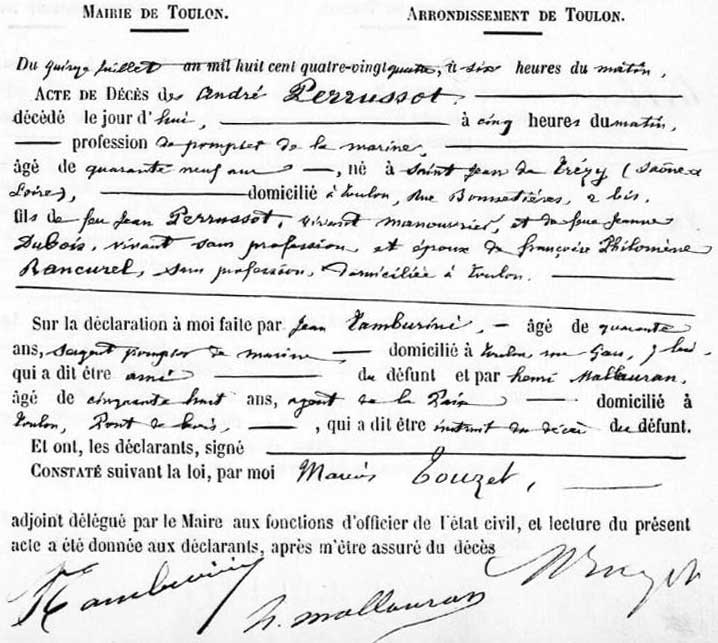 MAIRIE DE TOULON. ARRONDISSEMENT DE TOULON.
Du quinze juillet an mil huit cent quatre-vingt quatre, à six heures du matin,
ACTE DE DÉCÈS de André Perrussot,
décédé le jour d'hui, à cinq heures du matin,
profession de pompier de la marine,
âgé de quarante neuf ans, né à Saint Jean de Trézy (Saône &
Loire), domicilié à Toulon, Rue Bonnetières, 2 bis,
fils de feu Jean Perrussot, vivant manouvrier, et de feue Jeanne
Dubois, vivant sans profession, et époux de françoise Philomène
Rancurel, sans profession, domiciliée à Toulon.
Sur la déclaration à moi faite par Jean Tamburini, âgé de quarante
ans, sergent pompier de marine domicilié à Toulon, rue
qui a dit être ami du défunt et par henri Mallauran,
âgé de cinquante huit ans, agent de la Paix domicilié à
Toulon, Pont de bois, , qui a dit être instruit du décès du défunt.
Et ont, les déclarants, signé
CONSTATÉ suivant la loi, par moi Marius Touzet,
adjoint délégué par le Maire aux fonctions d'officier de l'état civil, et lecture du présent
acte a été donnée aux déclarants, après m'être assuré du décès
Tamburini
h. mallauran